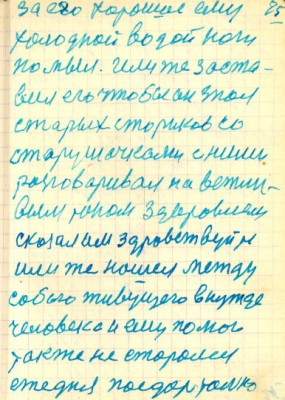 за его хорошее ему 25
холодной водой ноги
помыл. или же заста-
вил его чтобы он знал
старых стариков со
старушочками с ними
разговаривал на вежли-
вым тоном здоровием
сказал им здравствуйте
или же нашел между
собою живущего в нужде
человека и ему помог
также не старался
ежедня подар только